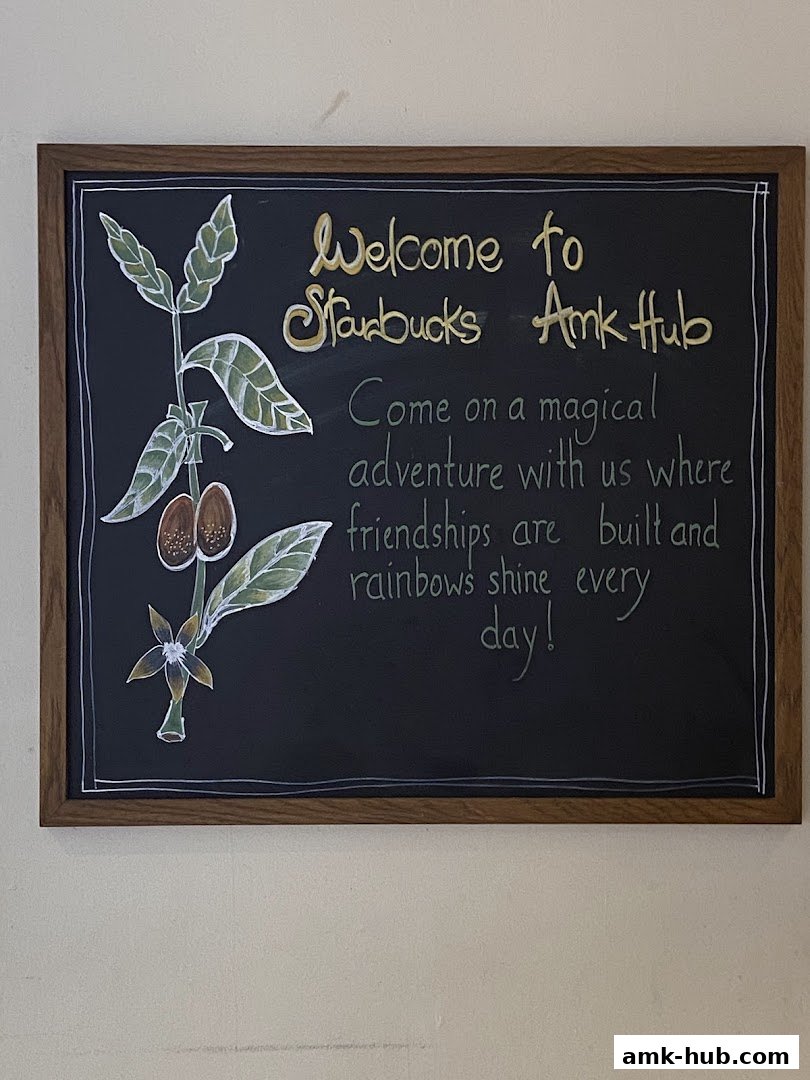 Welcome to
Starbucks Amk Hub
Come on a magical
adventure with us where
friendships are built and
rainbows shine every
day!
amk-hub.com